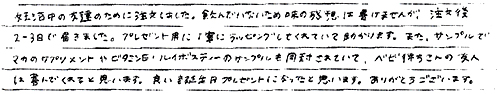 妊活中の友達のために注文しました。飲んでいないため味の感想は書けませんが、注文後
2-3日で届きました。プレゼント用に丁寧にラッピングしてくれていて助かります。また、サンプルで
マカのサプリメントやビタミンE・ルイボスティーのサンプルも同封されていて、ベビ待ちさんの友人
は喜んでくれると思います。良いお誕生日プレゼントになったと思います。ありがとうございます。